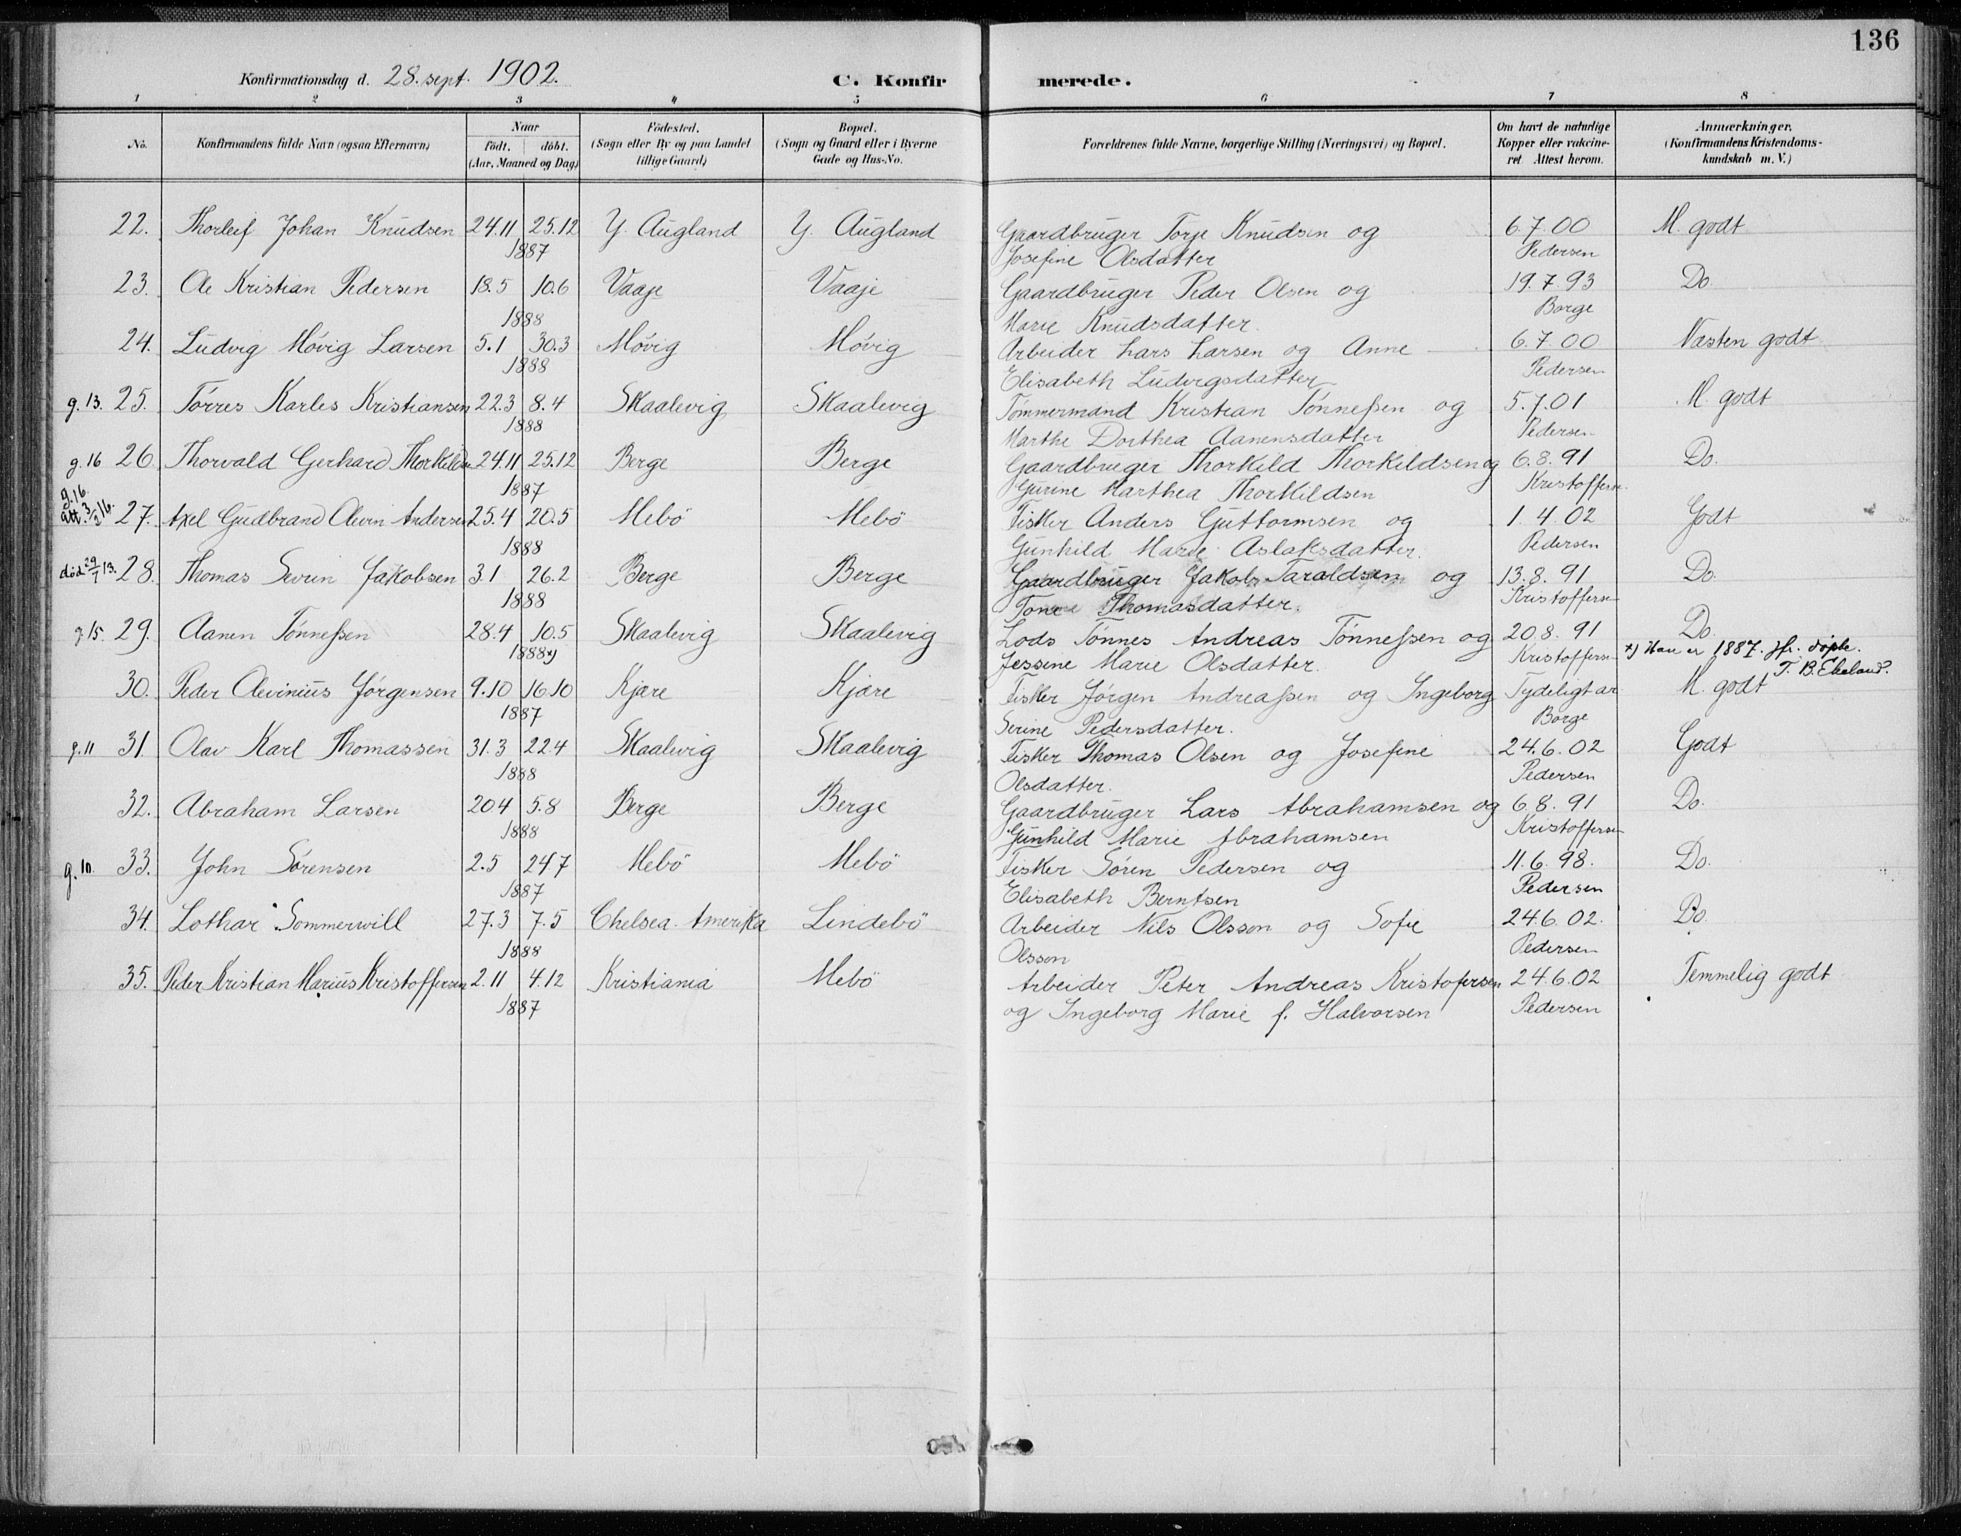 136
Konfirmationsdag d. 28. sept. 1902. C. Konfirmerede.
1 2 3 4 5 6 7 8
No. Konfirmandens fulde Navn (ogsaa Efternavn) Naar födt. döbt. (Aar, Maaned og Dag) Födested. (Sogn eller By og paa Landet tillige Gaard) Bopæl. (Sogn og Gaard eller i Byerne Gade og Hus-No. Forældrenes fulde Navne, borgerlige Stilling (Næringsvei) og Bopæl. Om havt de naturlige Kopper eller vakcineret. Attest herom. Anmærkninger. (Konfirmandens Kristendomskundskab m. V.)
22. Thorleif Johan Knudsen 24.11 25.12 Y. Augland Y. Augland Gaardbruger Torje Knudsen og 6.7.00 M. godt
1887 Josefine Olsdatter Pedersen
23. Ole Kristian Pedersen 18.5 10.6 Vaaje Vaaje Gaardbruger Peder Olsen og 19.7.93 Do.
1888 Marie Knudsdatter. Borge
24. Ludvig Móvig Larsen 5.1 30.3 Móvig Móvig Arbeider Lars Larsen og Anne 6.7.00 Næsten godt
1888 Elisabeth Ludvigsdatter Pedersen
g. 13. 25. Tórres Karles Kristiansen 22.3 8.4 Skaalevig Skaalevig Tømmermand Kristian Tönneßen og 5.7.01 M. godt
1888 Marthe Dorthea Aanensdatter Pedersen
g. 16 26. Thorvald Gerhard Thorkildsen 24.11 25.12 Berge Berge Gaardbruger Thorkild Thorkildsen og 6.8.91 Do.
1887 Gurine Marthea Thorkildsen Kristoffersen
g. 16. att. 3/2 16. 27. Axel Gudbrand Olevin Andersen 25.4 20.5 Mebö Mebö Fisker Anders Guttormsen og 1.4.02 Godt
1888 Gunhild Marie Aslaksdatter. Pedersen
död 29/7 13. 28. Thomas Severin Jakobsen 3.1 26.2 Berge Berge Gaardbruger Jakob Taraldsen og 13.8.91 Do.
1888 Tone Thomasdatter. Kristoffersen
g. 15. 29. Aanen Tönneßen 28.4 10.5 Skaalevig Skaalevig Lods Tönnes Andreas Tönneßen og 20.8.91 Do.
1888 x) Jessine Marie Olsdatter. Kristoffersen x) Han er 1887. jfr. döpte. T. B. Ekeland.
30. Peder Olevinius Jörgensen 9.10 16.10 Kjære Kjære Fisker Jörgen Andreaßen og Ingeborg Tydeligt ar M. godt
1887 Serine Pedersdatter. Borge
g. 11 31. Olav Karl Thomassen 31.3 22.4 Skaalevig Skaalevig Fisker Thomas Olsen og Josefine 24.6.02 Godt
1888 Olsdatter. Pedersen
32. Abraham Larsen 20.4 5.8 Berge Berge Gaardbruger Lars Abrahamsen og 6.8.91 Do.
1888 Gunhild Marie Abrahamsen Kristoffersen
g. 10. 33. John Sörensen 2.5 24.7 Mebö Mebö Fisker Sören Pedersen og 11.6.98. Do.
1887 Elisabeth Berntsen Pedersen
34. Lothar Sommerwill 27.3 7.5 Chelsea. Amerika Lindebö Arbeider Nils Olsson og Sofie 24.6.02. Do.
1888 Olsson Pedersen
35. Peder Kristian Marius Kristoffersen 2.11 4.12 Kristiania Mebö Arbeider Peter Andreas Kristofersen 24.6.02 Temmelig godt
1887 og Ingeborg Marie f. Halvorsen Pedersen